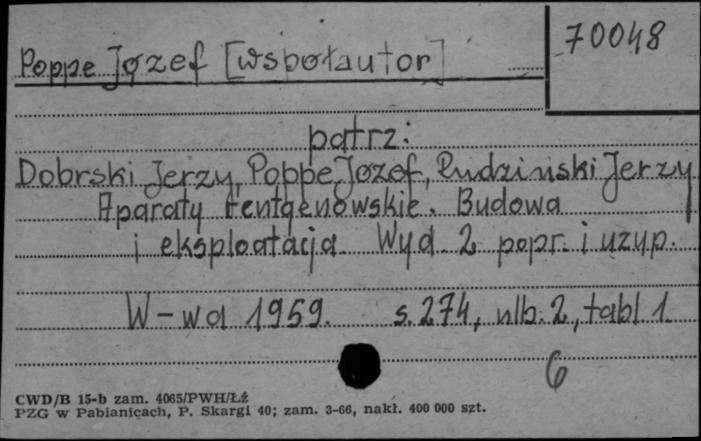 70048
Poppe Józef [wspołautor]
patrz:
Dobrski Jerzy, Poppe Jozef, Rudziński Jerzy
Aparaty rentgenowskie. Budowa
i eksploatacja. Wyd. 2 popr. i uzup.
W-wa 1959. s. 274, nlb. 2, tabl 1
6
CWD/B 15-b zam. 4065/PWH/Łź
PZG w Pabianicach, P. Skargi 40; zam. 3-66, nakł. 400 000 szt.